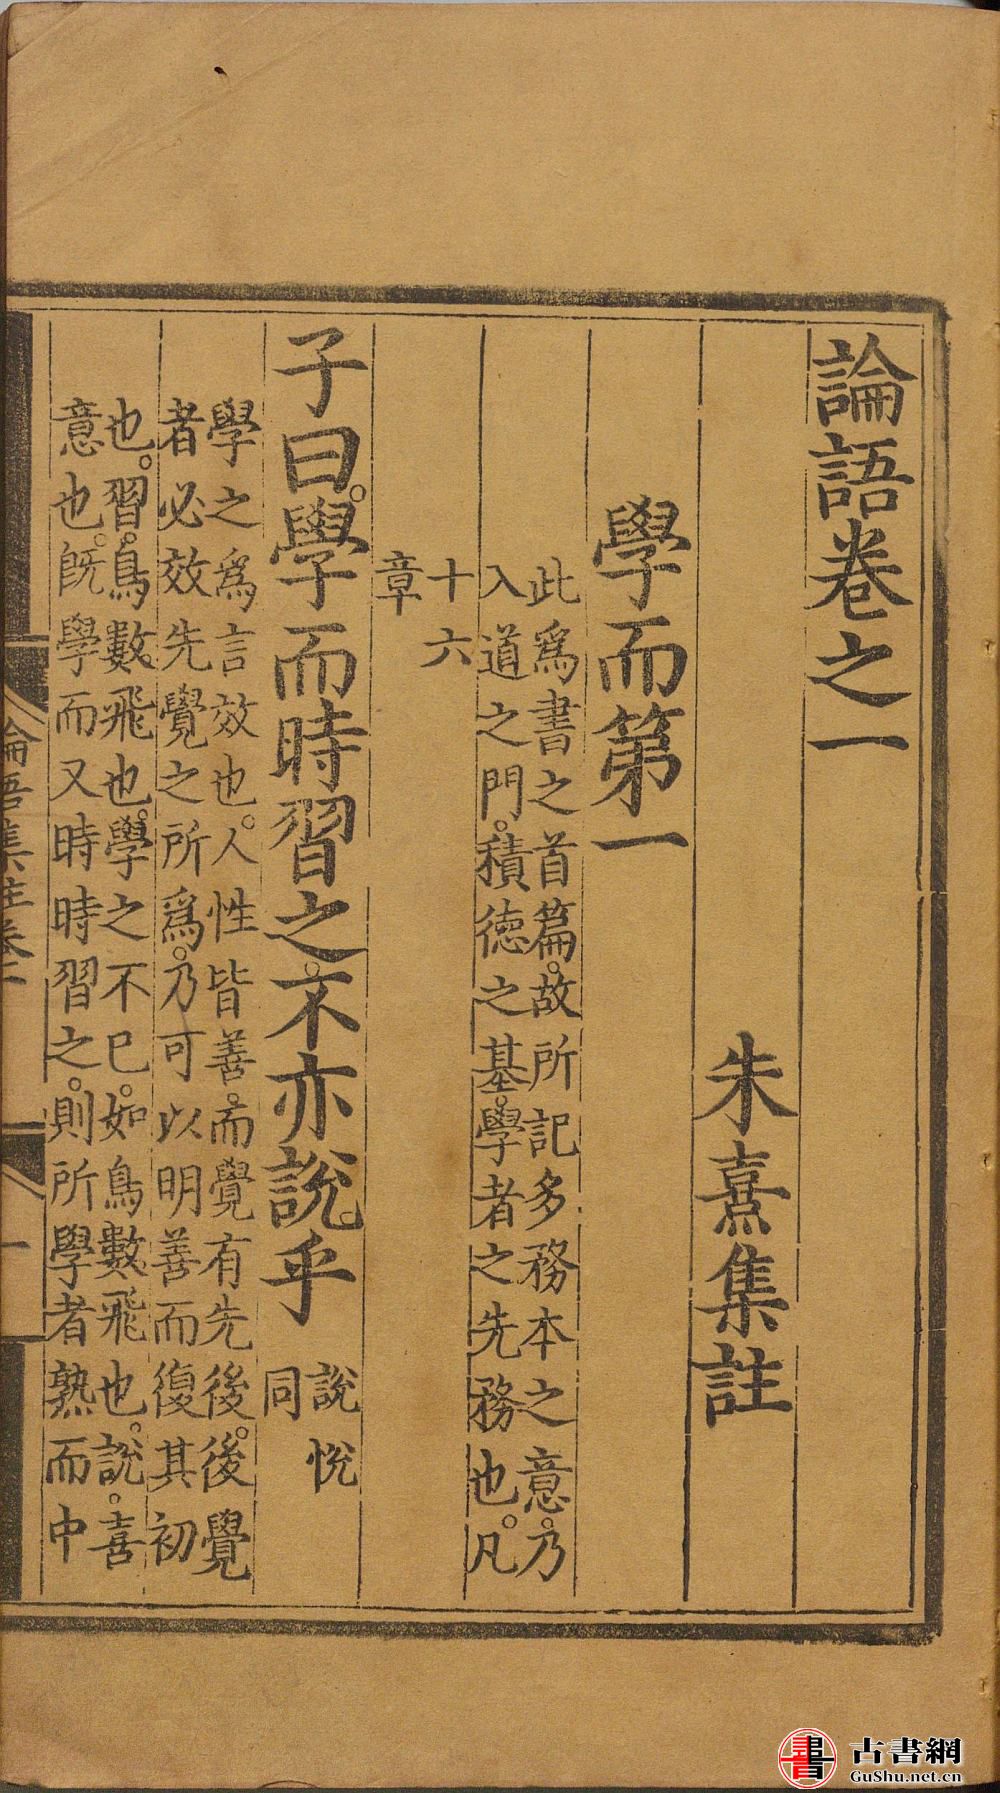 論語卷之一
朱熹集註
學而第一
此爲書之首篇。故所記多務本之意。乃
入道之門。積德之基。學者之先務也。凡
十六
章
子曰。學而時習之。不亦說乎
說悅
同
學之爲言效也。人性皆善。而覺有先後。後覺
者必效先覺之所爲。乃可以明善而復其初
也。習。鳥數飛也。學之不已。如鳥數飛也。說。喜
意也。旣學而又時時習之。則所學者熟而中
論語集註卷一
一
古書網
GuShu.net.cn